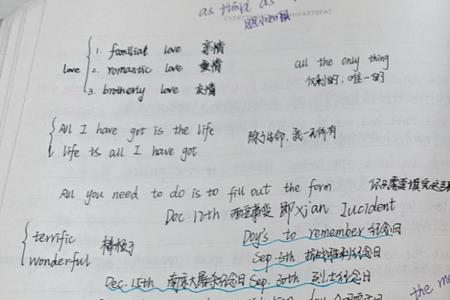 as timid as
胆小如鼠
1. familiar love 亲情
love 2. romantic love 爱情
3. brotherly love 友情
all the only thing
仅剩的，唯一的
All I have got is the life
life is all I have got
除了生命，我一无所有
All you need to do is to fill out the form
Dec 12th 西安事变 即Xian Incident
terrific 棒极了
wonderful
Day's to remember 纪念日
Sep. 3th 抗战胜利纪念日
Dec. 13th 南京大屠杀纪念日 Sep. 30th 烈士纪念日
the mo